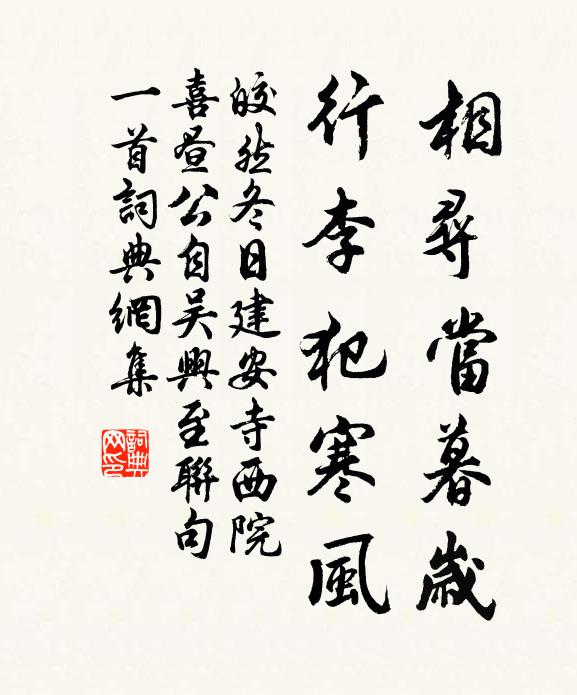 相尋當暮歲
行李犯寒風
皎然冬日建安寺西院
喜晝公自吳興至聯句
一首詞典網集
詞典
网印